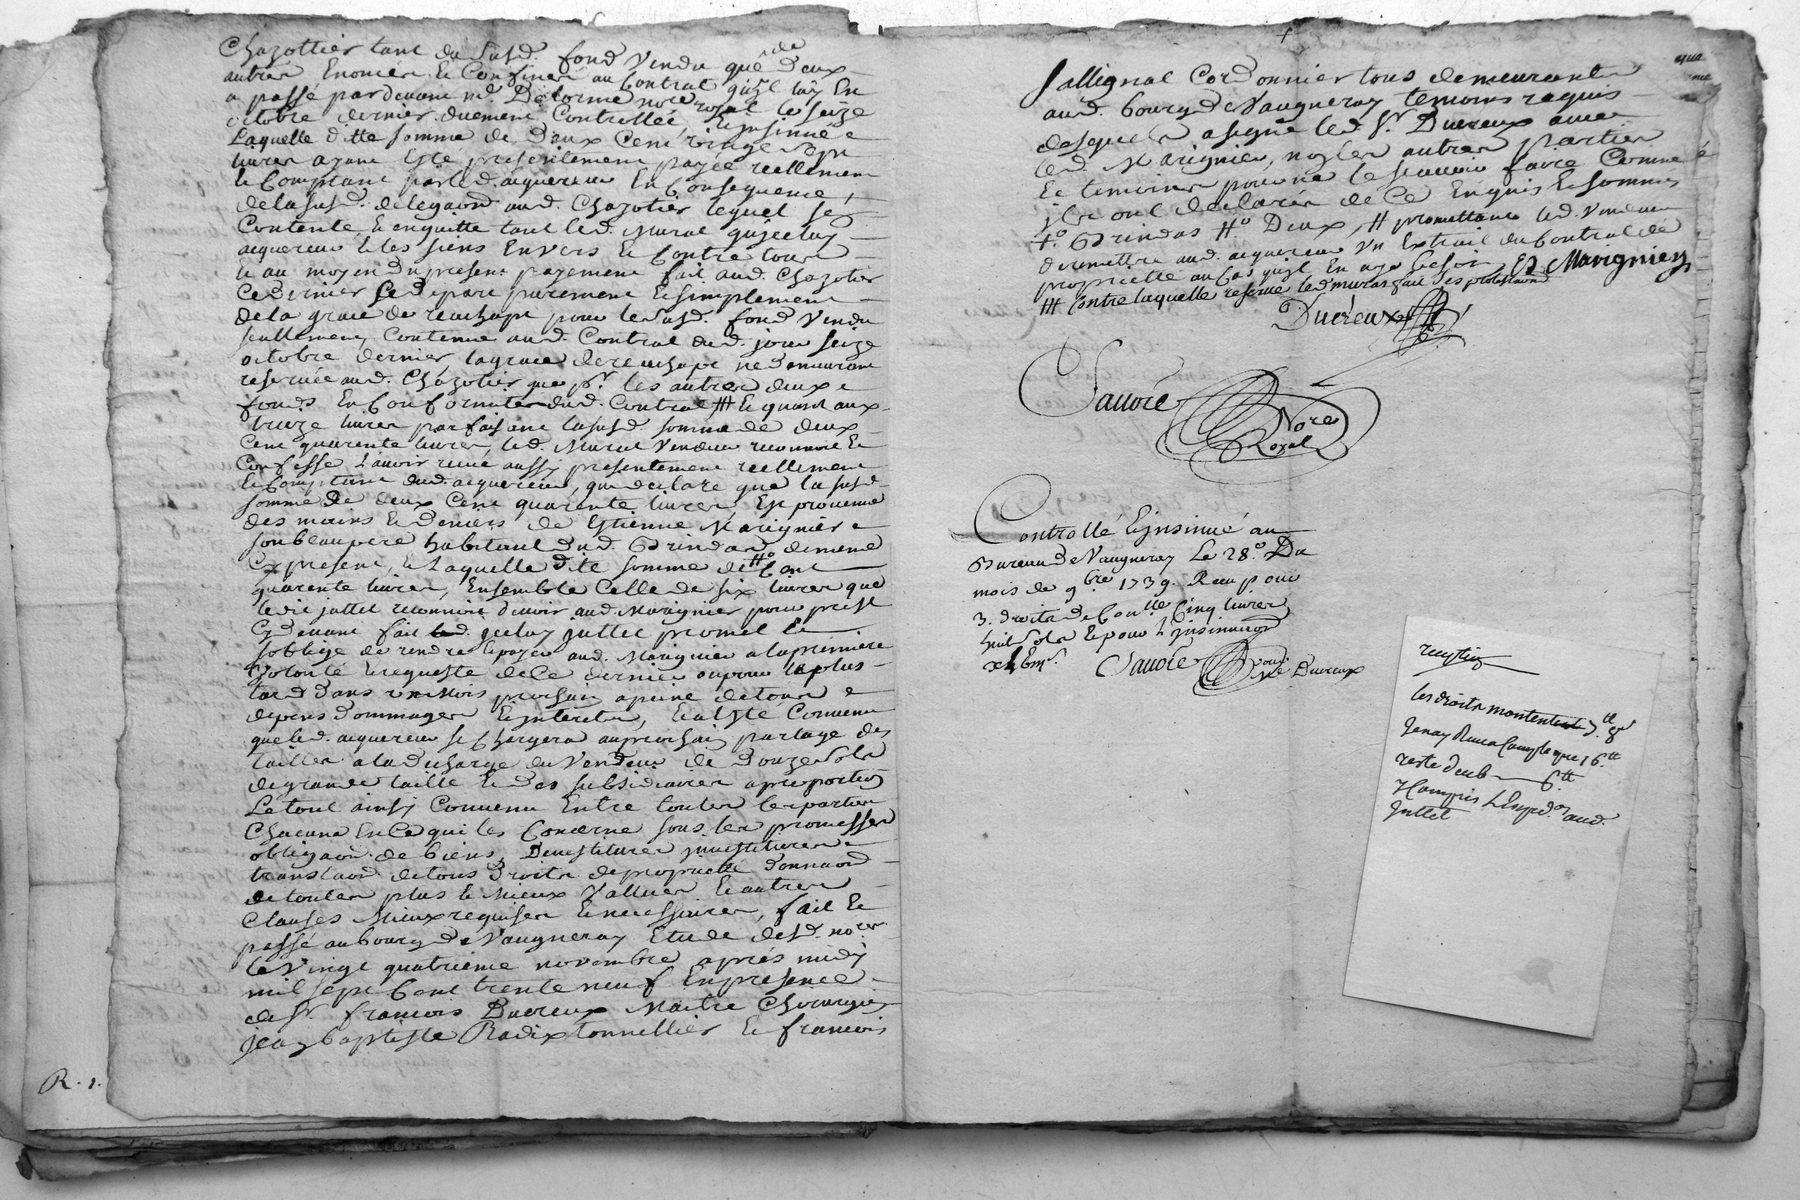 Chazottier tant du susd. fond vendu que de deux
autres Enoncés & Confinés au Contrat qu'il luy En
a passé pardevant me. Delorme nore royal le seize
octobre dernier duement Controllée & Insinuée
Laquelle ditte somme de Deux Cent vingt sept
livres ayant Esté presentement payée reellement
& Comptant par led. acquereur En Consequence
de la susd. delegaon aud. Chazotier lequel s'en
Contente & enquitte tant led. Murat qu'jceluy
acquereur & les siens Envers & Contre tous
& au moyen du present payement fait aud. Chazotier
Ce dernier se depart purement & simplement
de la grace de reachapt pour le susd. fond vendu
seullement Contenue aud. Contrat dud. jour seize
octobre dernier la grace de reachapt ne demeurant
reservée aud. Chazotier que pr. les autres deux
fonds En Conformité dud. Contrat /// & quant aux
treize livres parfaisant lasusd. somme de deux
Cent quarente livres, led. Murat Vendeur reconnoit &
Confesse L'avoir receu aussy presentement reellement
& Comptant dud. acquereur, qui declare que la susd.
somme de deux Cent quarente livres, Est provenue
des mains & Deniers de Estienne Marignier
son beaupere habitant dud. Grindas de meme
Cy present, & Laquelle dite somme de #o Cent
quarente livres, Ensemble Celle de six livres que
ledit juttet reconnoit devoir aud. Marignier pour prest
Cy devant fait jceluy juttet promet &
s'oblige de rendre & payer aud. Marignier a la premiere
Volonté & requeste de Ce dernier ou pour le plus
tard dans six Mois prochain a peine de tous
depens dommages & interets, & a esté Convenu
que led. acquereur se Chargera au prochain partage des
tailles a la decharge du Vendeur de Douze Sols
de grande taille & des subsidiaires a proportion
Le tout ainsy Convenu Entre toutes les parties
Chacune En Ce qui les Concerne sous les promesses
obligaon. de biens, Devestitures jnvestitures
translaon de tous Droits de proprieté donnaon
de toutes plus & Mieux Vallues & autres
Clauses Mieux requises & necessaires, fait &
passé au bourg de Vaugneray Etude desd. nores
le Vingt quatrieme novembre après midy
mil sept Cent trente neuf En presence
de Sr. francois Ducreux Maitre Chirurgien
jean baptiste Radix tonnellier & francois
Sallignat Cordonnier tous demeurants
aud. bourg de Vaugneray temoins requis
desquels a signé led. Sr. Ducreux avec
led. Marignier, non les autres parties
& temoins pour ne le scavoir faire Comme
jls ont declarés de Ce Enquis & sommés
#o Grindas #o Deux, /// promettant led. vendeur
de remettre aud. acquereur un Extrait du Contrat de
proprieté au Cas qu'il En aye besoin, E Marignier
/// Contre laquelle reserve led. murat fait ses protestaons
Ducreux
Sauvié
Nore
Royal
Controllé & jnsinué au
Bureau de Vaugneray Le 28.e Du
mois de 9bre 1739. Reçu pour
3. droits de Conlle Cinq livres
huit Sols & pour L'jnsinuaon
Sauvié pour
Mr Ducreux
R. 1.
les droits montent
Jenay Receu Compte que 16 tt
reste deub 6 tt
y Compris L'Exped.on aud.
Juttet